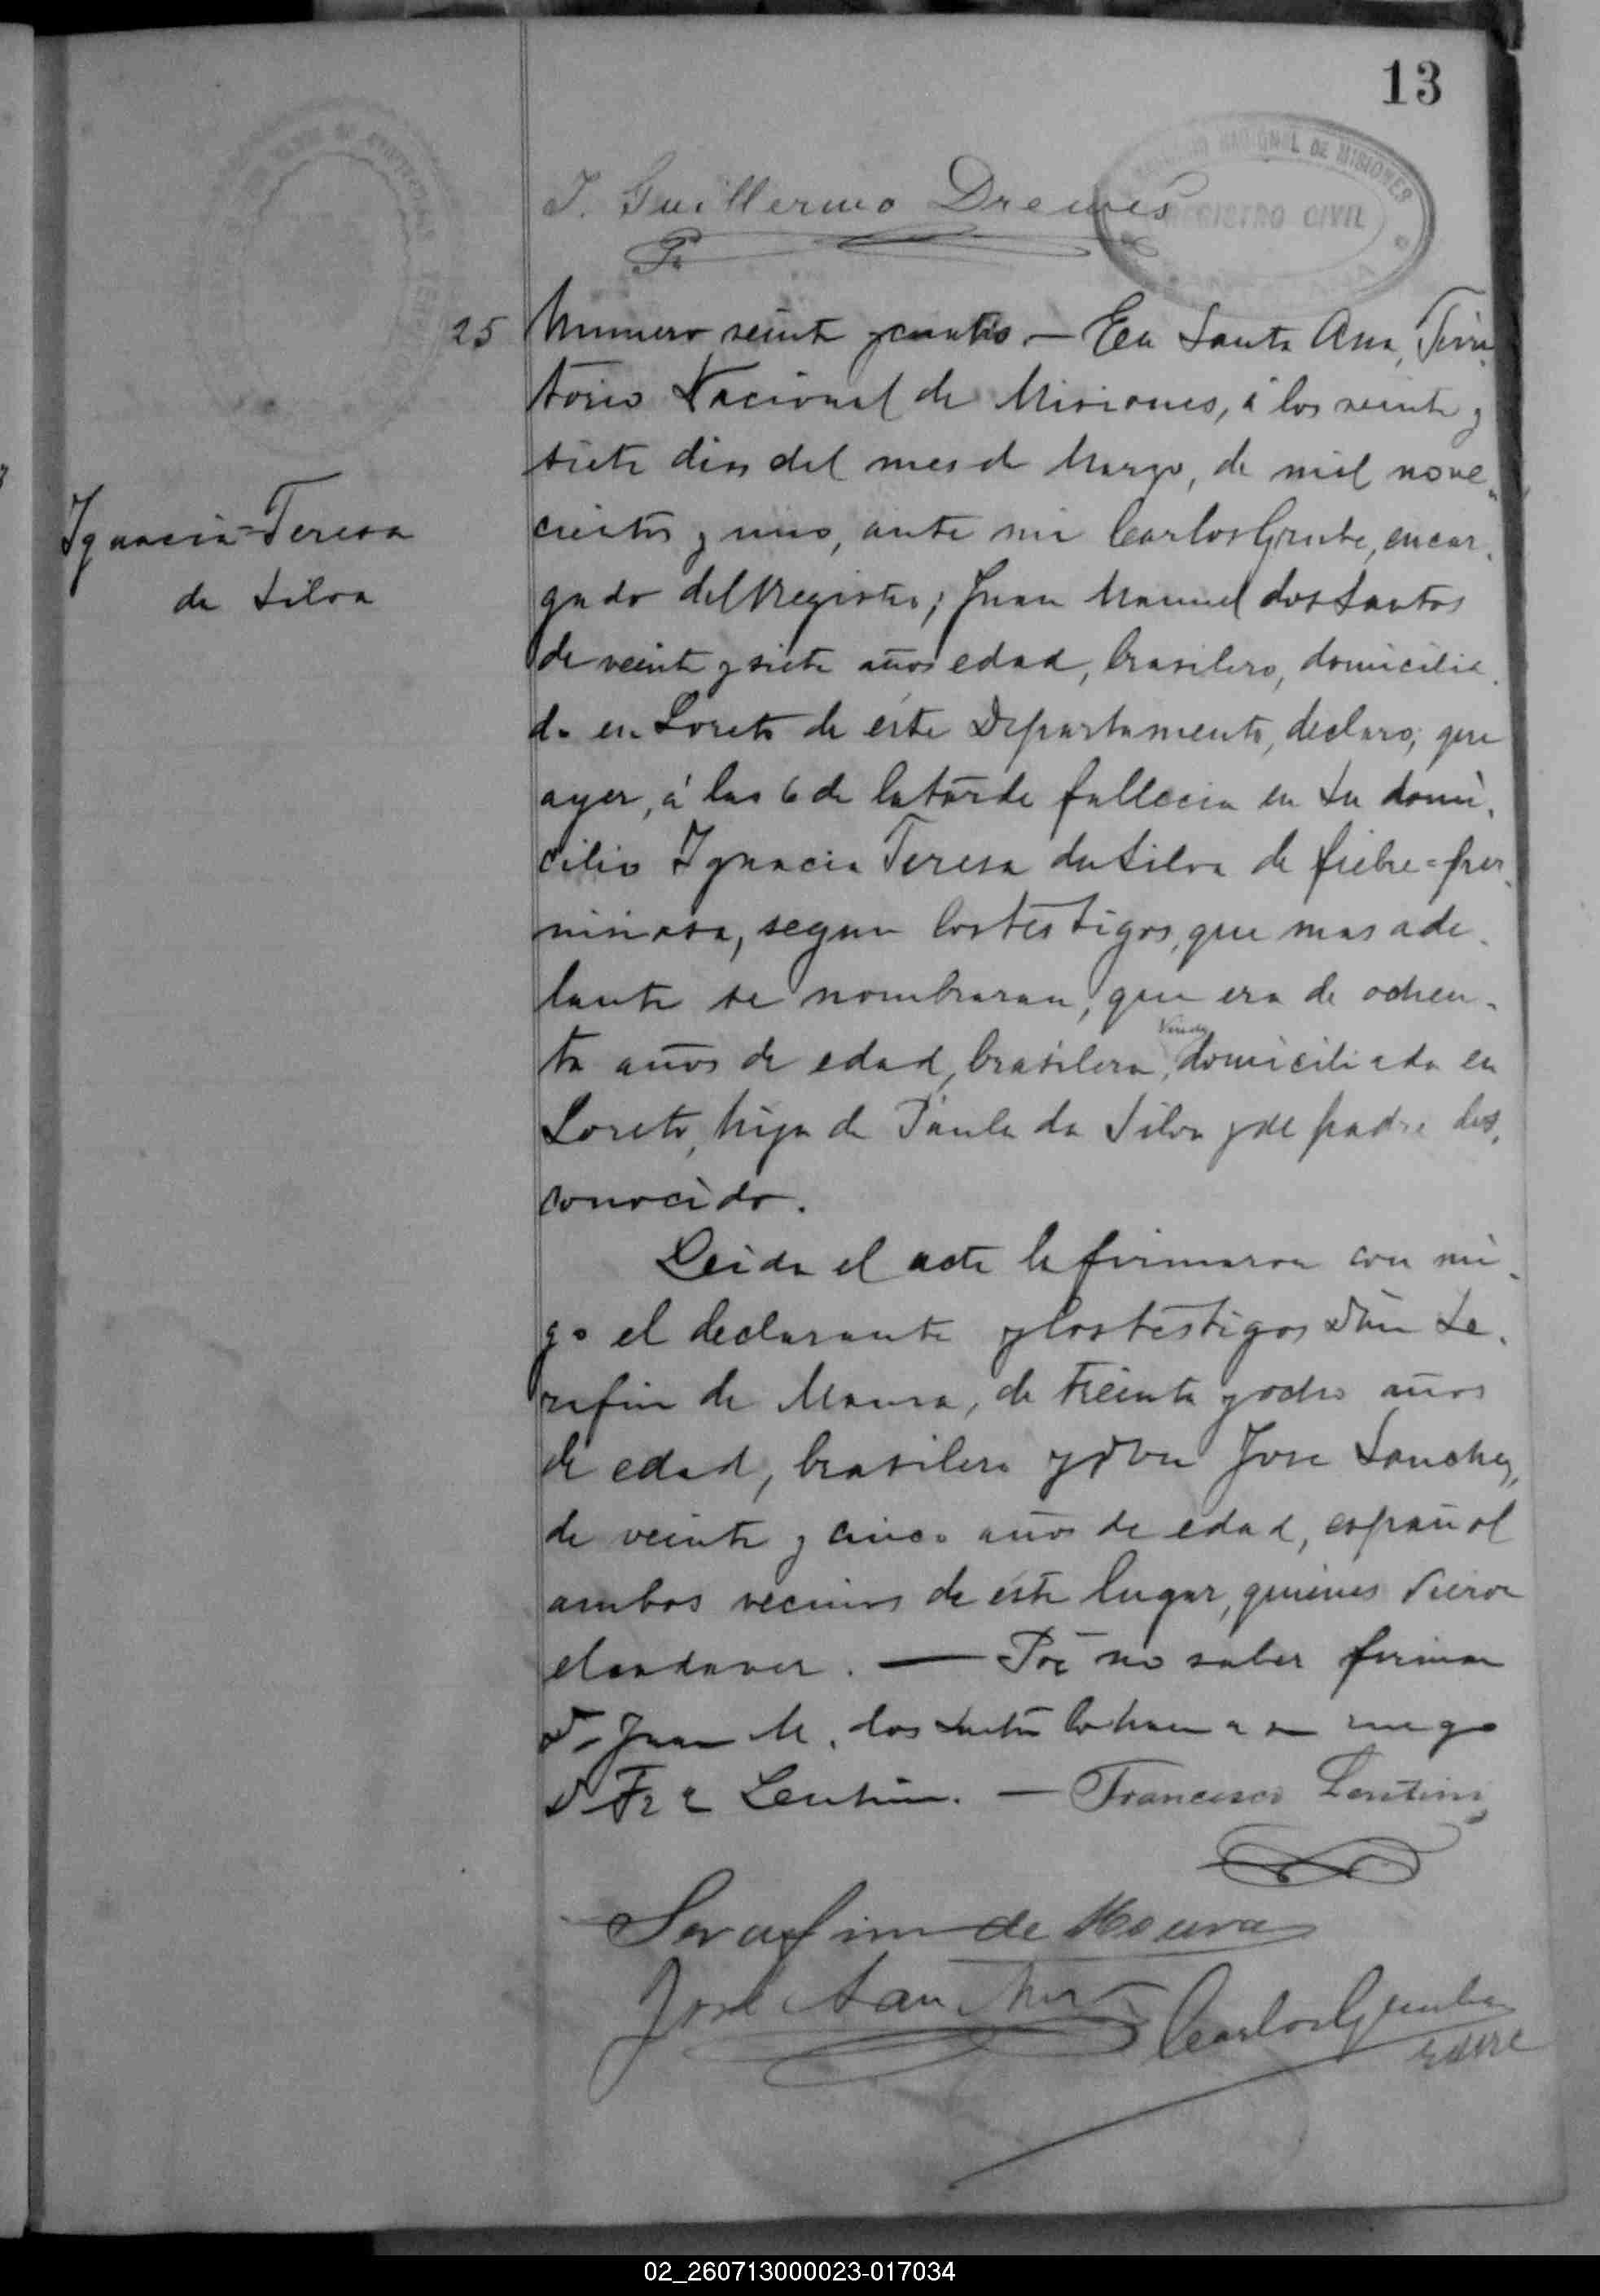 13
NACIONAL DE MISIONES
REGISTRO CIVIL
J. Guillermo Drewes
25
Numero veinte y cuatro. — En Santa Ana, Terri-
torio Nacional de Misiones, á los veinte y
siete dias del mes de Marzo, de mil nove-
cientos y uno, ante mi Carlos Grube, encar-
gado del Registro; Juan Manuel dos Santos
de veinte y siete años edad, brasilero, domicilia-
do en Loreto de éste Departamento, declaro; que
ayer, á las 6 de la tarde fallecia en su domi-
cilio Ignacia Teresa da Silva de fiebre=per-
niniosa, segun los testigos, que mas ade-
lante se nombraran, que era de ochen-
ta años de edad, brasilera, Viuda, domiciliada en
Loreto, hija de Paula da Silva y de padre des-
conocido.
Ignacia=Teresa
da Silva
Leida el acta la firmaron con mi-
go el declarante y los testigos Don Se-
rafin de Moura, de treinta y ocho años
de edad, brasilero y Don Jose Sanchez,
de veinte y cinco años de edad, español
ambos vecinos de éste lugar, quienes vieron
el cadaver. — Por no saber firmar
D. Juan M. dos Santos lo hace a su ruego
D. Lentini. — Francesco Lentini
Serafim de Moura
José Sanchez
Carlos Grube
02_260713000023-017034